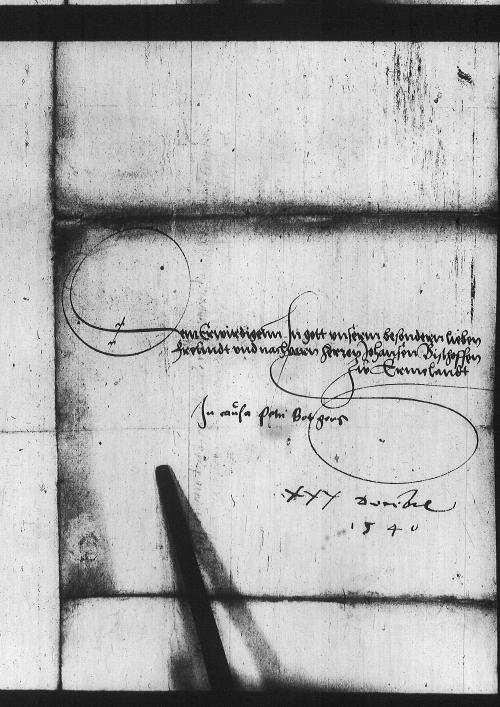 Dem Erwirdigenn In gott vnserm besondern lieben
freundt vnd nachparn herren Johansen Bischoffen
zw Ermelandt
In causa Petri
XXX
1540